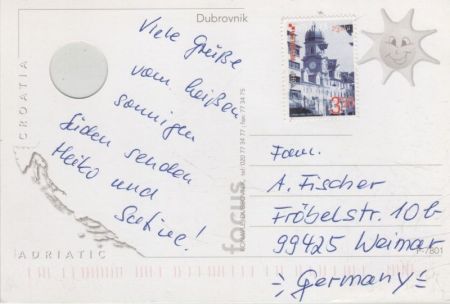 Dubrovnik
CROATIA
ADRIATIC
Viele Grüße
vom heißen
sonnigen
Süden senden
Heiko und
focus
tel: 020 77 34 77 / fax: 77 34 75
3,50
Fam.
A. Fischer
Fröbelstr. 10b
99425 Weimar
F-7801
Germany